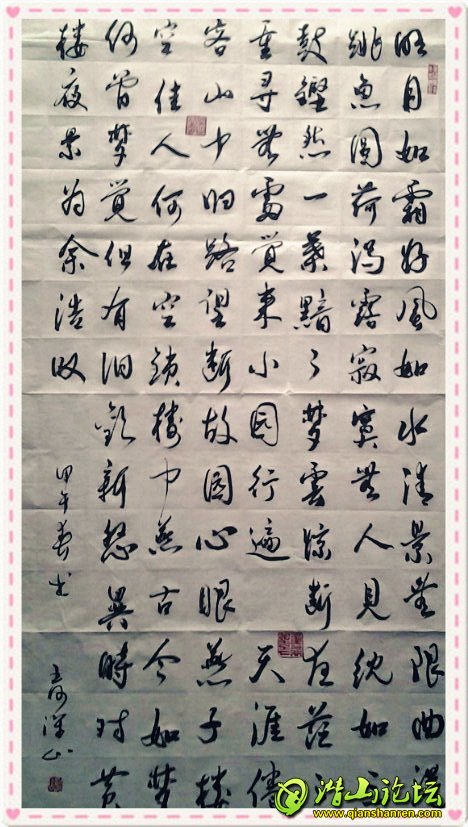 明月如霜好风如水清景無限曲港
跳魚圆荷泻露寂寞無人見紞如三
鼓鏗然一葉黯々梦雲惊断夜茫々
重尋無處覺来小園行遍天涯倦
客山中归路望断故園心眼燕子楼
空佳人何在空鎖楼中燕古今如梦
何曾梦覺但有旧歡新怨異時对黄
楼夜景为余浩叹
甲午春书
潜山论坛
www.qianshanren.com